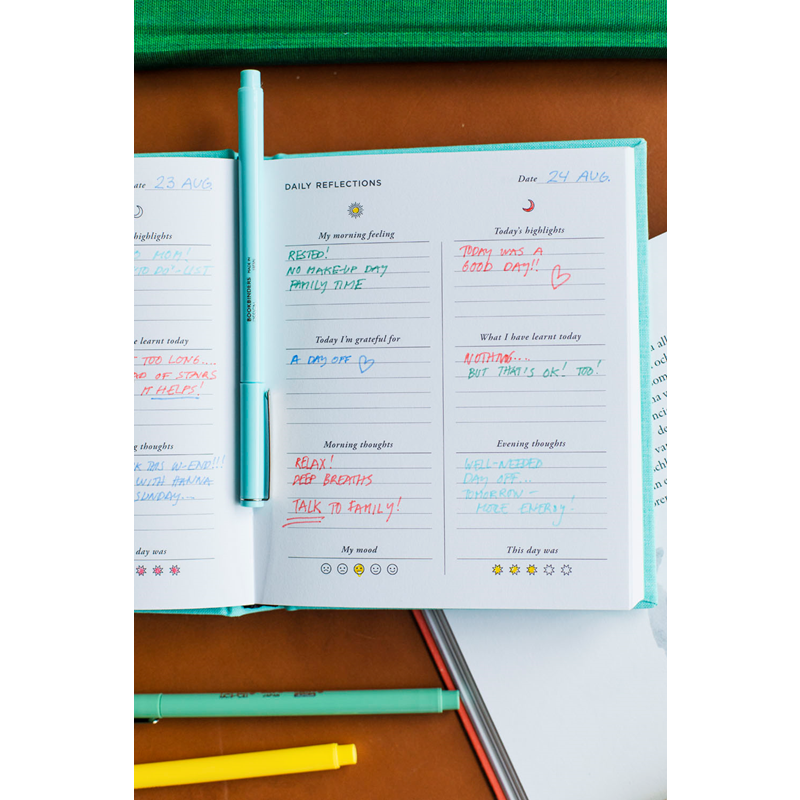 ate 23 AUG
highlights
MOM!
TO DO'-LIST
learnt today
TOO LONG....
OF STAIRS
IT HELPS!
thoughts
THIS W-END!!!
WITH HANNA
SUNDAY...
day was
BOOKBINDERS
DAILY REFLECTIONS
My morning feeling
RESTED!
NO MAKE-UP DAY
FAMILY TIME
Today I'm grateful for
A DAY OFF
Morning thoughts
RELAX!
DEEP BREATHS
TALK TO FAMILY!
My mood
Date 24 AUG.
Today's highlights
TODAY WAS A
GOOD DAY!!
What I have learnt today
NOTHING....
BUT THAT'S OK! TOO!
Evening thoughts
WELL-NEEDED
DAY OFF...
TOMORROW -
MORE ENERGY!
This day was